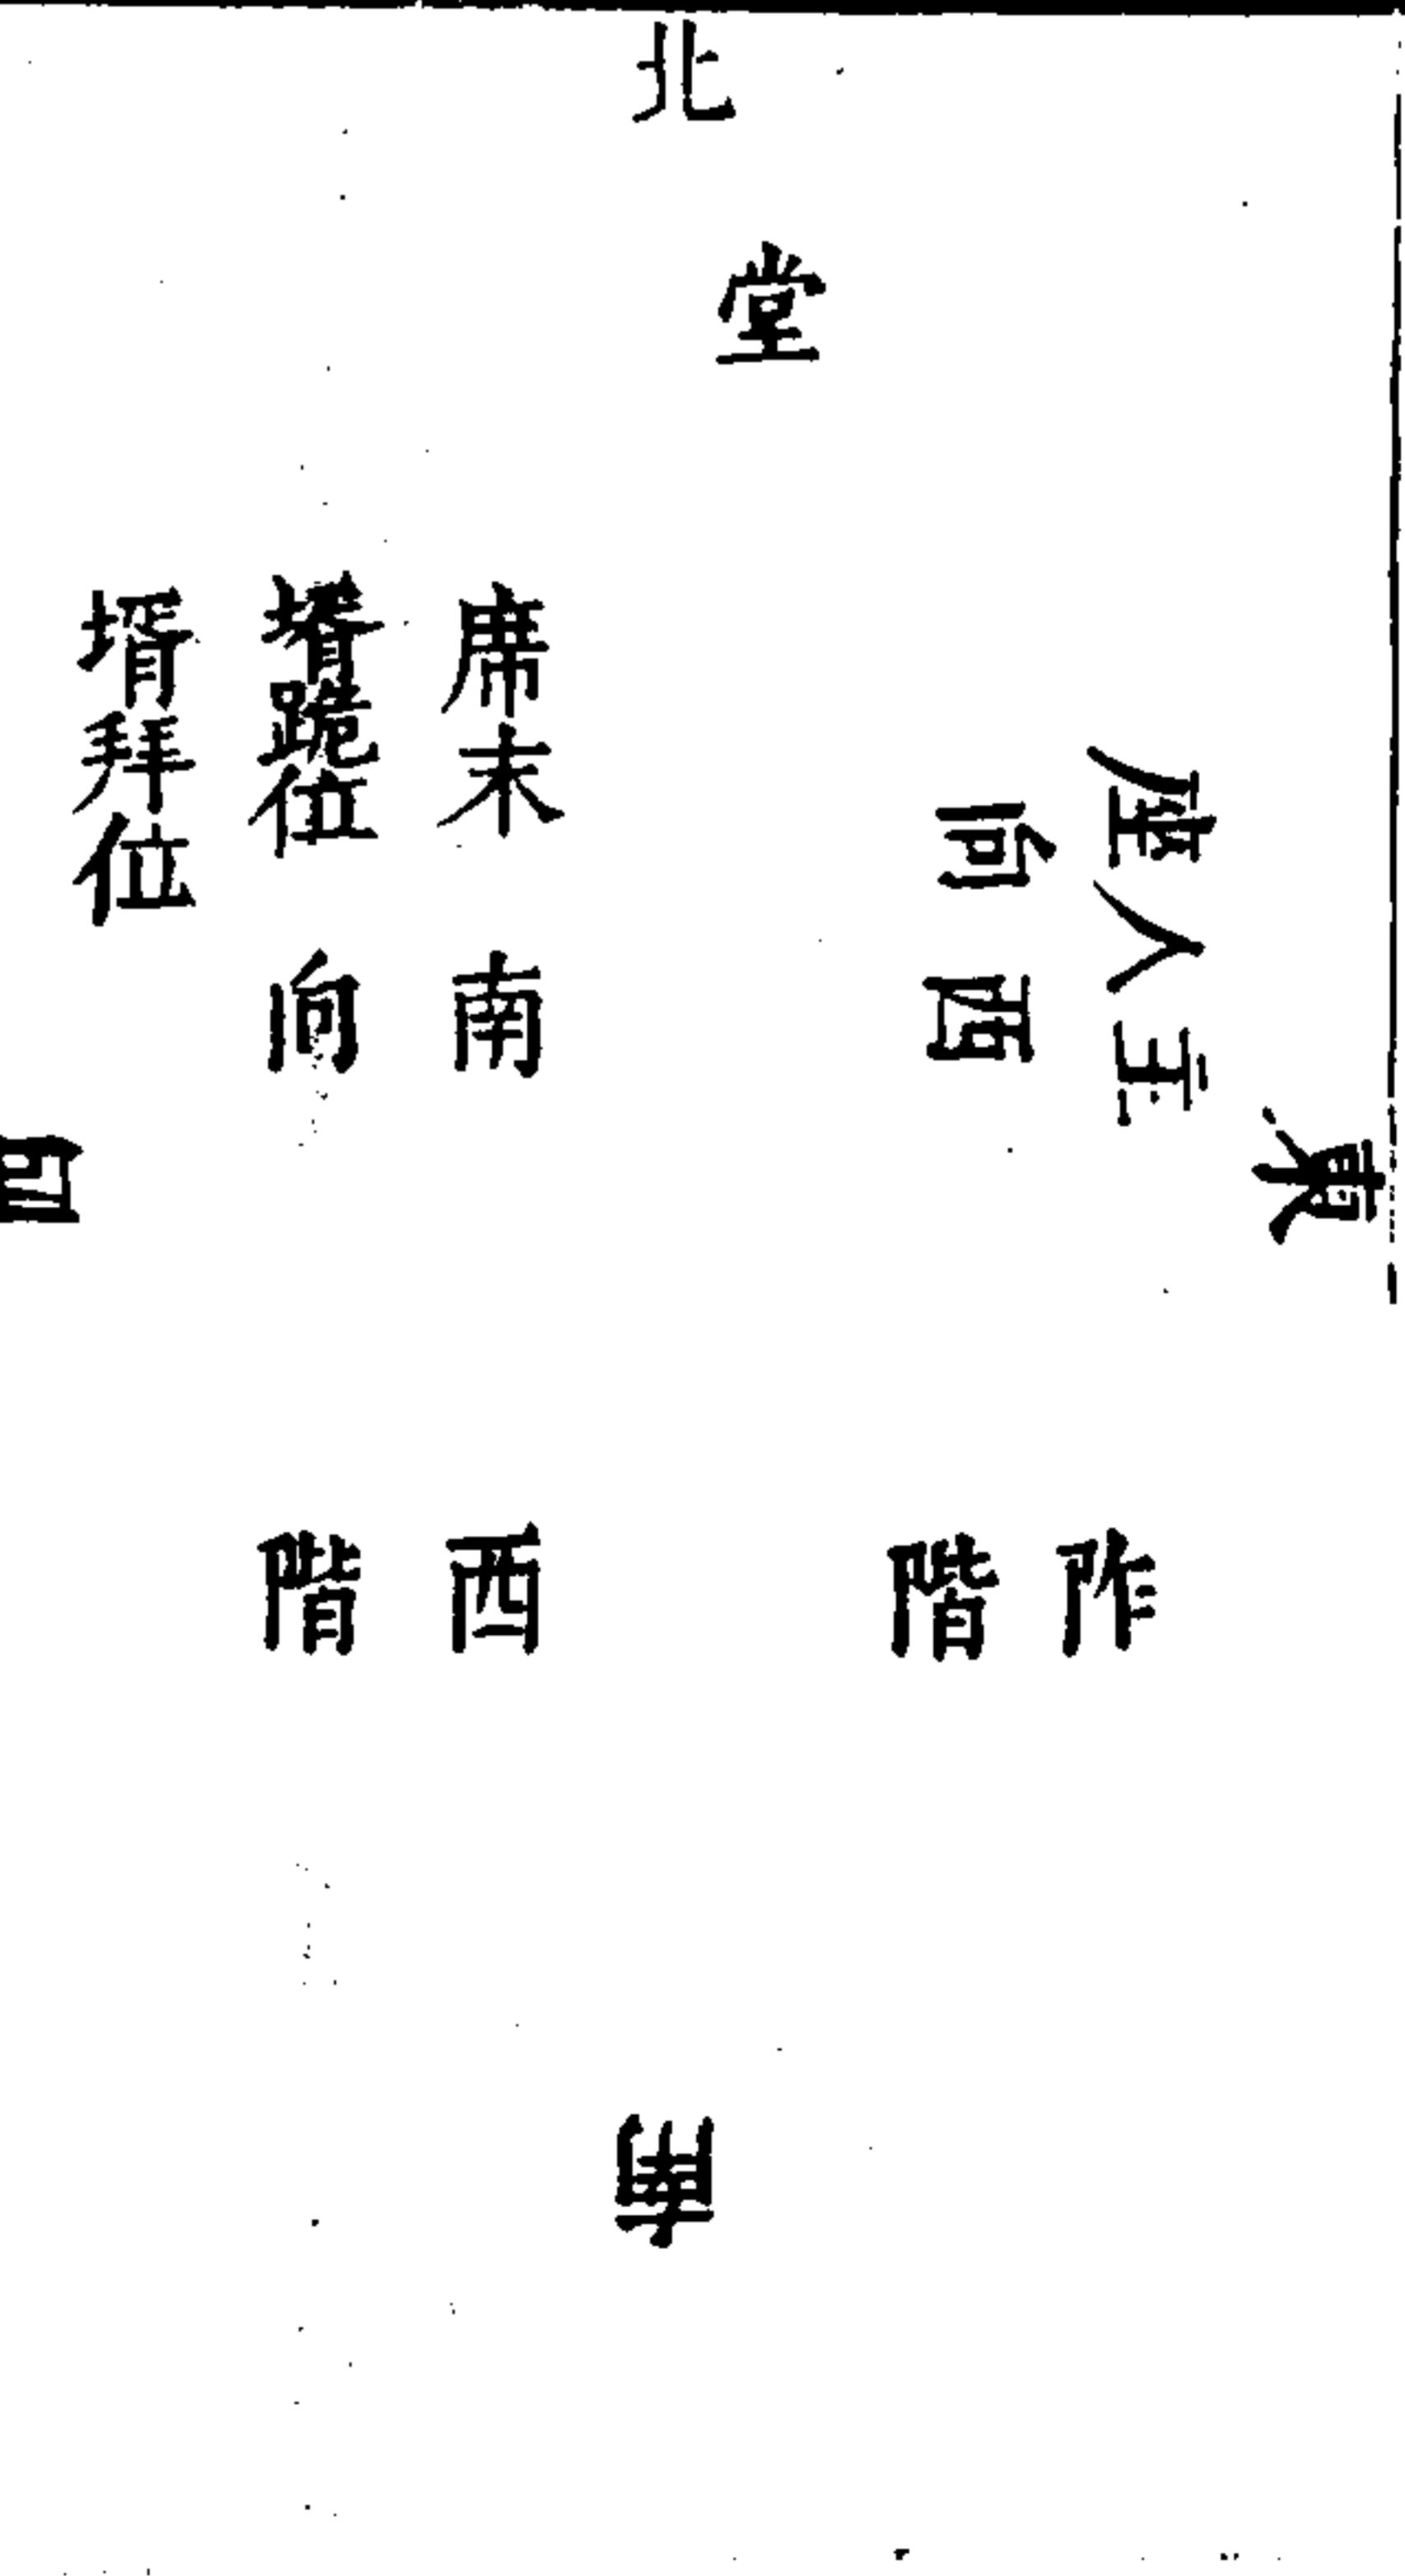 北
堂
東
主人座
西向
席末
南向
壻跪位
壻拜位
西
阼階
西階
南